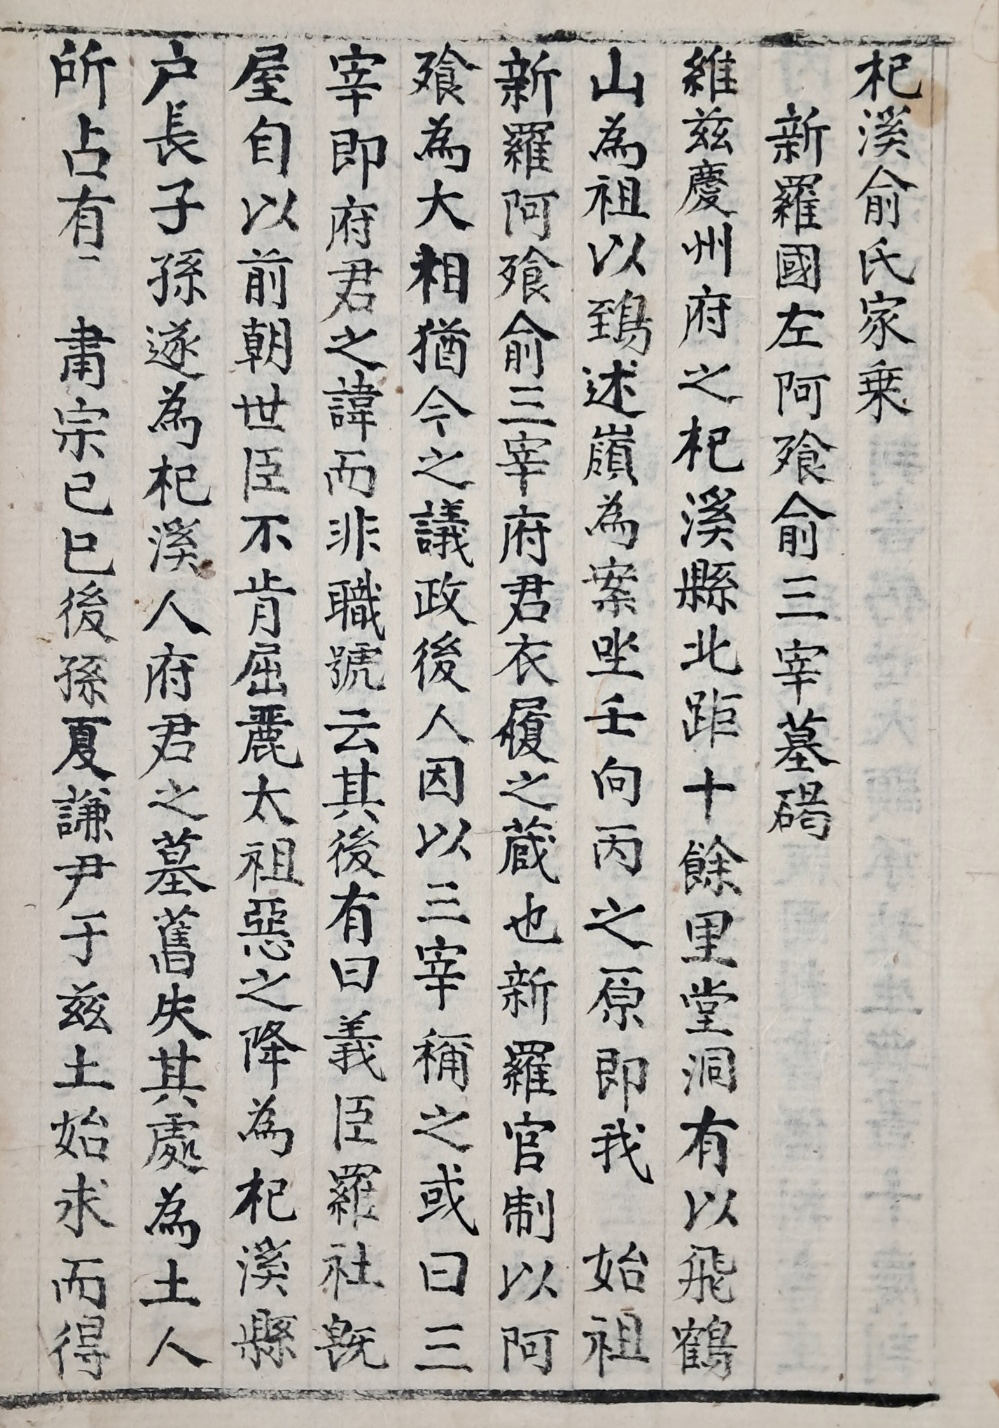 杞溪俞氏家乗
新羅國左阿飱俞三宰墓碣
維玆慶州府之杞溪縣北距十餘里堂洞有以飛鶴
山為祖以鵄述嶺為案坐壬向丙之原即我 始祖
新羅阿飱俞三宰府君衣履之蔵也新羅官制以阿
飱為大相猶今之議政後人因以三宰稱之或曰三
宰即府君之諱而非職號云其後有曰義臣羅社旣
屋自以前朝世臣不肯屈麗太祖惡之降為杞溪縣
户長子孫遂為杞溪人府君之墓舊失其處為土人
所占有 肅宗己巳後孫夏謙尹于玆土始求而得